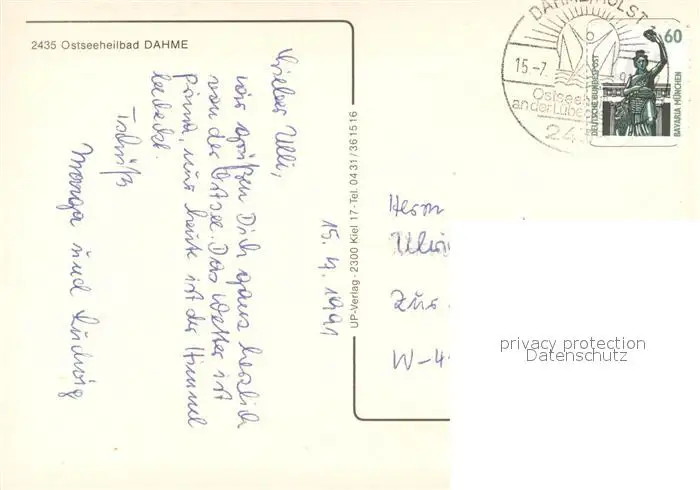 2435 Ostseeheilbad DAHME
Lieber Ulli,
wir grüßen Dich ganz herzlich
von der Ostsee. Das Wetter ist
prima, nur heute ist der Himmel
bedeckt.
Tschüß
und Ludwig
15. 7. 1991
UP-Verlag - 2300 Kiel 17 - Tel. 0431/361516
DAHME/HOLST
15.-7.
91
Ostsee
an der Lübe
24
60
DEUTSCHE BUNDESPOST
BAVARIA MÜNCHEN
Herrn
Zur
W-4
privacy protection
Datenschutz